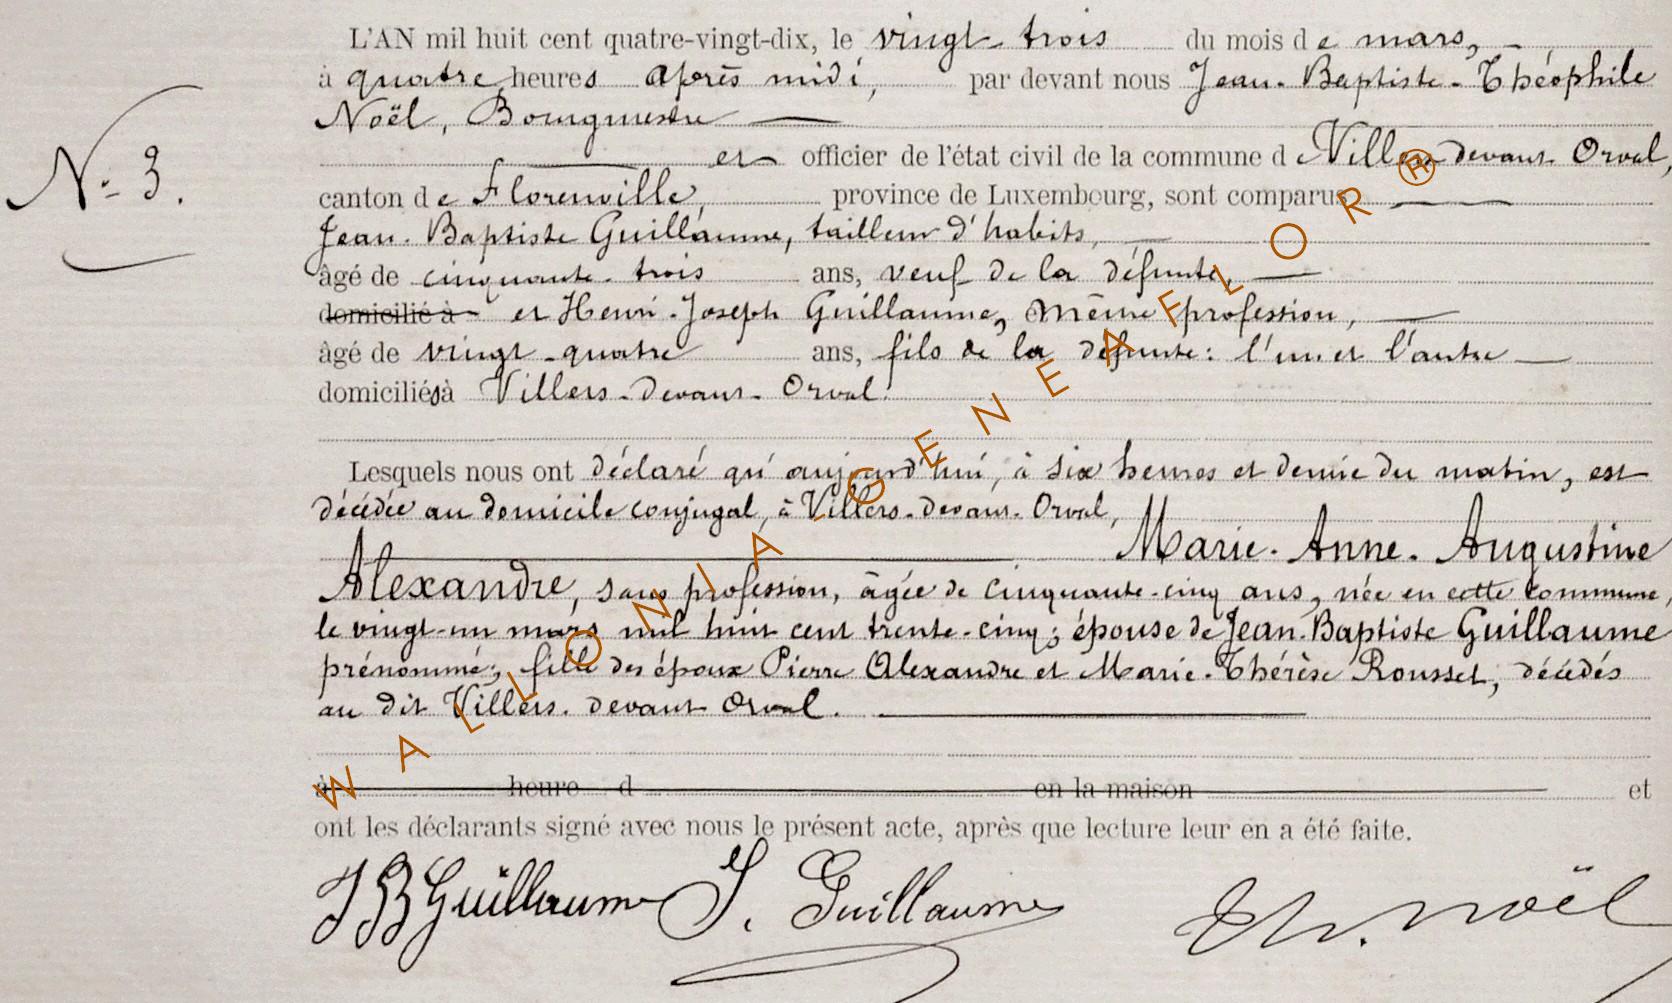 L'AN mil huit cent quatre-vingt-dix, le vingt-trois du mois de mars,
à quatre heures après midi, par devant nous Jean-Baptiste-Théophile
Noël, Bourgmestre
et officier de l'état civil de la commune de Villers devant Orval,
N° 3.
canton de Florenville, province de Luxembourg, sont comparus
Jean-Baptiste Guillaume, tailleur d'habits,
âgé de cinquante-trois ans, veuf de la défunte,
domicilié à et Henri-Joseph Guillaume, même profession,
âgé de vingt-quatre ans, fils de la défunte: l'un et l'autre
domiciliés à Villers-devant-Orval.
Lesquels nous ont déclaré qu'aujourd'hui, à six heures et demie du matin, est
décédée au domicile conjugal, à Villers-devant-Orval,
Marie-Anne-Augustine
Alexandre, sans profession, âgée de cinquante-cinq ans, née en cette commune,
le vingt-un mars mil huit cent trente-cinq; épouse de Jean-Baptiste Guillaume
prénommé; fille des époux Pierre Alexandre et Marie-Thérèse Rousset, décédés
au dit Villers-devant Orval.
à heure d en la maison et
ont les déclarants signé avec nous le présent acte, après que lecture leur en a été faite.
JB Guillaume J. Guillaume Th. Noël
WALLONIA GENEAFLOR®